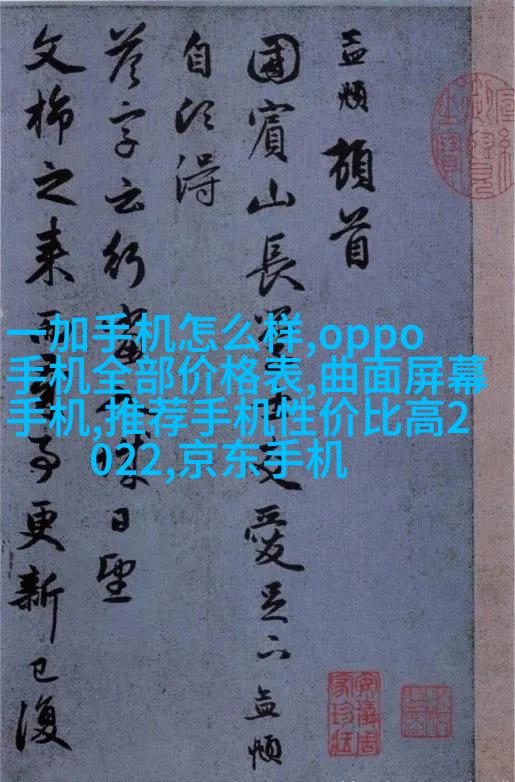 一加手机怎么样,oppo
手机全部价格表,曲面屏幕
手机,推荐手机性价比高2
022,京东手机
孟頫頓首
國賓山長愛足下孟頫
自頃得
答字云行當日望
文旆之来而更新已復